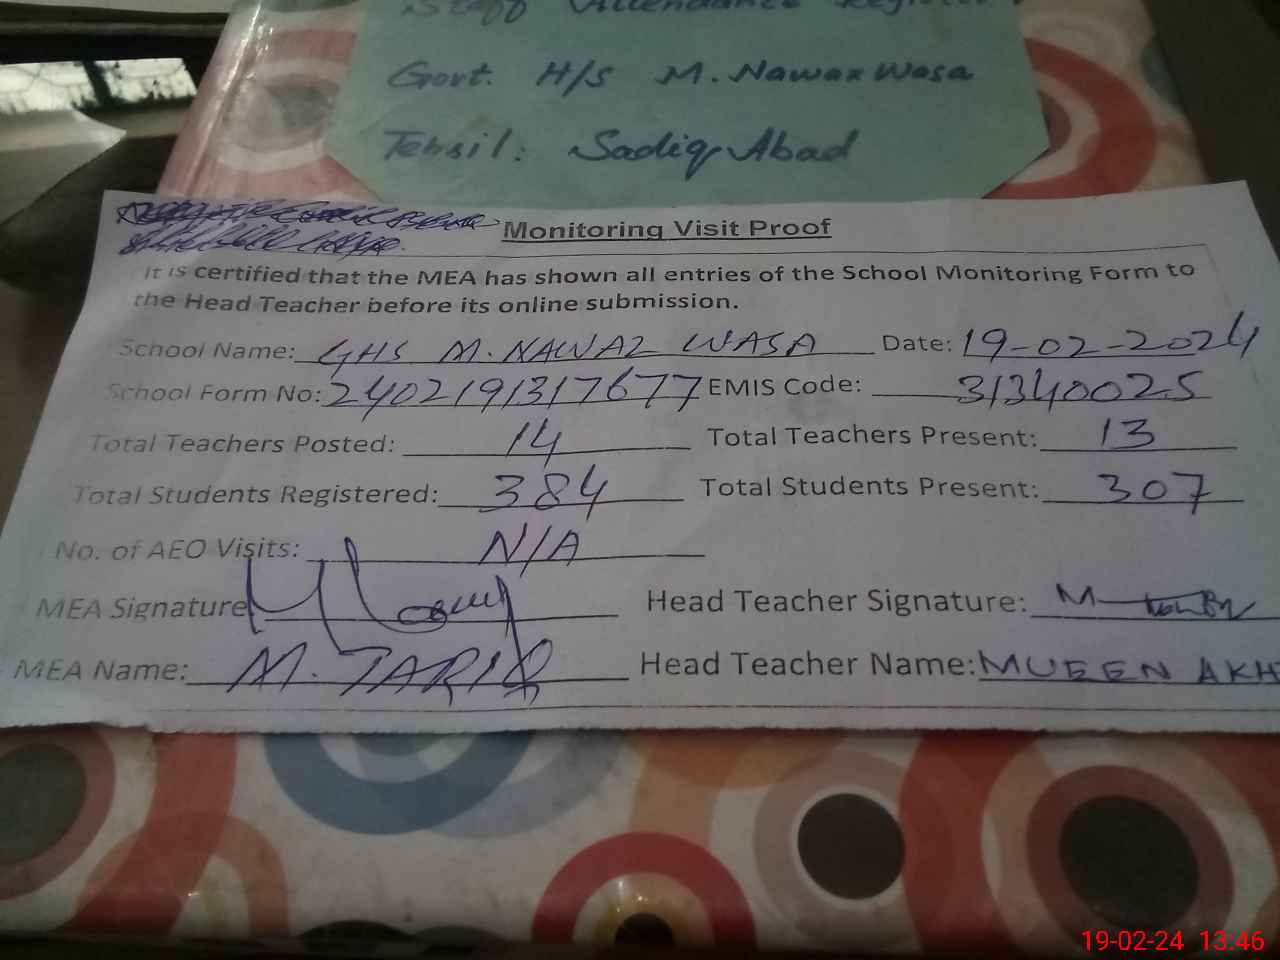 Staff Attendance Register
Govt. H/S M. Nawaz Wasa
Tehsil: Sadiq Abad
Monitoring Visit Proof
It is certified that the MEA has shown all entries of the School Monitoring Form to
the Head Teacher before its online submission.
School Name: GHS M. NAWAZ WASA Date: 19-02-2024
School Form No: 2402191317677 EMIS Code: 31340025
Total Teachers Posted: 14 Total Teachers Present: 13
Total Students Registered: 384 Total Students Present: 307
No. of AEO Visits: N/A
MEA Signature Head Teacher Signature:
MEA Name: M. TARIQ Head Teacher Name: MUEEN AKH
19-02-24 13:46